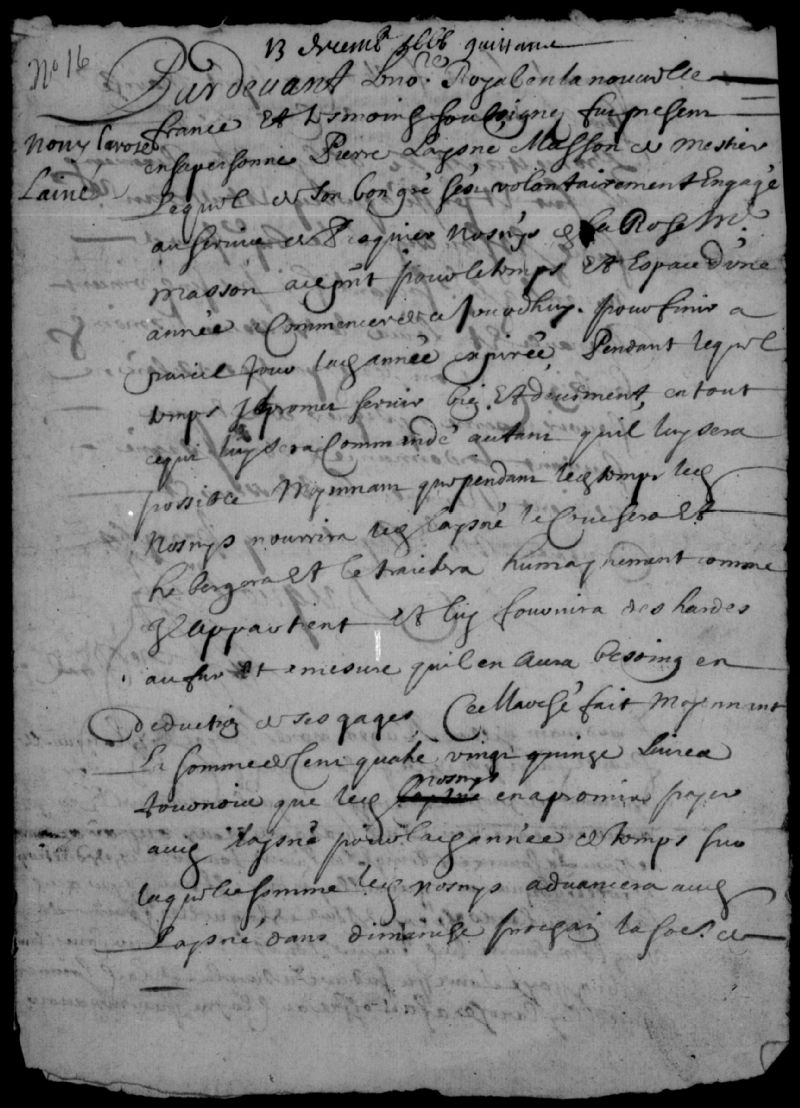 No 16
13 decemb 1666 quittance
Pardevant le no.re Royal en la nouvelle
france Et tesmoings soubsignez fut present
Nouy Larose
Lainé
en sa personne Pierre Lajsné Masson de Mestier
Lequel de son bon gré s'est volontairement Engagé
au service de Nosnÿs dt La Rose Me
masson acept pour le temps Et Espace d'une
année a Commencer de ce Jourdhuy pour finir a
pareil Jour lad année expirée, Pendant lequel
temps Il promet servir bien Et deuement en tout
ce qui luy sera Commandé autant quil luy sera
possible Moyennant que pendant led temps led
Nosnÿs nourrira led Lajsné le Couchera Et
hebergera Et le traictera humaynement comme
Il appartient Et luy fournira des hardes
au fur Et a mesure quil en aura besoing en
deduction de ses gages, Ce Marché fait Moyennant
La somme de Cent quatre vingt quinze Livres
tournois que led nosnys en a promis payer
aud Lajsné pour lad année de temps sur
laquelle somme led Nosnÿs advancera aud
Lajsné dans dimanche prochain la so.e de